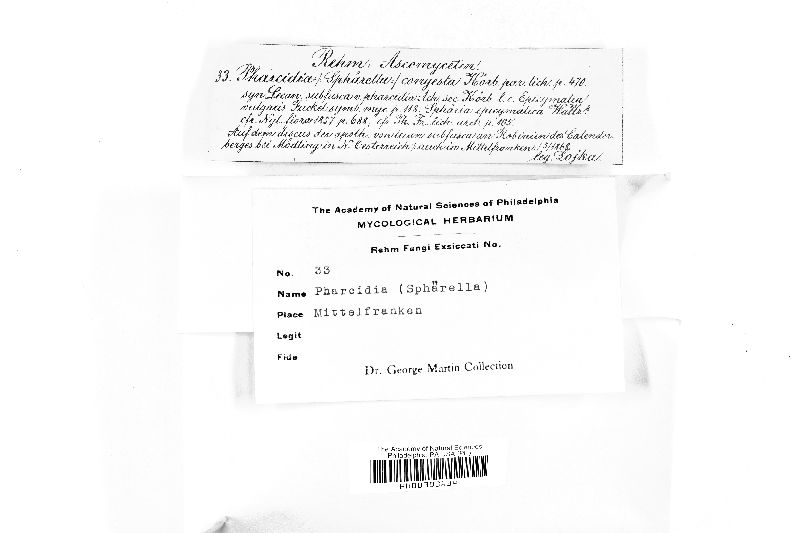 Rehm, Ascomyceten
33. Pharcidia (Sphärella) congesta Körb par. lich. p. 470.
syn Lecan. subfusca v. pharcidia Ach. sec Körb. l. c. Epicymatia
vulgaris Fuckel symb. myc. p. 118. Sphäria epicymatia Wallr
cfr. Nyl. flora 1857 p. 688, cfr Th. Fr. lich. arct. p. 105
Auf dem discus der apoth. von Lecan subfusca an Robinien des Calender
berges bei Mödling in N. Oesterreich; auch in Mittelfranken. 1868
leg. Lojka.
The Academy of Natural Sciences of Philadelphia
MYCOLOGICAL HERBARIUM
Rehm Fungi Exsiccati No.
No. 33
Name Pharcidia (Sphärella)
Place Mittelfranken
Legit
Fide
Dr. George Martin Collection
The Academy of Natural Sciences
Philadelphia, PA